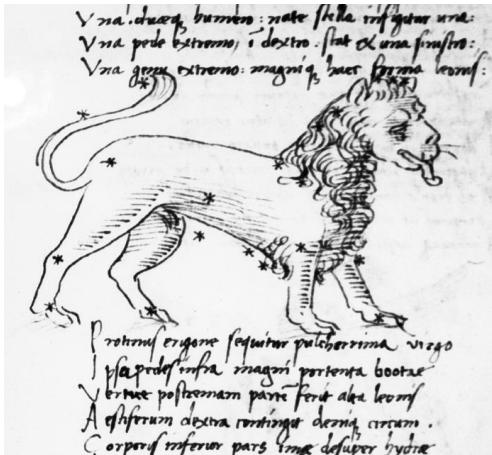 Vna: duæq; humero: nate stella insigitur una:
Vna pede extremo, i dextro: stat & una sinistro:
Vna genu extremo: magniq; haec forma leonis:
Protinus erigone sequitur pulcherrima virgo
Ipsa pedes infra magni portenta bootae
Vertice postremam parte ferit alta leonis
Aestiferum dextra contingit deniq; circum.
Corporis inferior pars imæ desuper hydræ